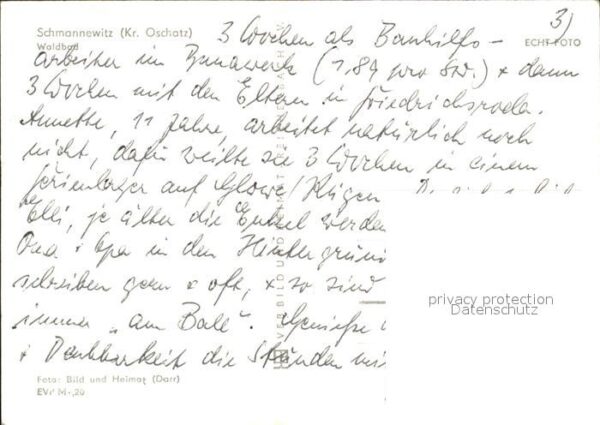 Schmannewitz (Kr. Oschatz)
Waldbad
3)
ECHT FOTO
3 Wochen als Bauhilfs-
arbeiter im Bunawerk (1,84 pro Std.) + dann
3 Wochen mit den Eltern in Friedrichsroda.
Annette, 11 Jahre, arbeitet natürlich noch
nicht, dafür weilte sie 3 Wochen in einem
Ferienlager auf Glowe/Rügen
Elli, je älter die Enkel werden
Oma + Opa in den Hintergrund
schreiben gern + oft, + so sind
immer "am Ball". Genieße
+ Dankbarkeit die Stunden mit
VERBILD UND
privacy protection
Datenschutz
Foto: Bild und Heimat (Darr)